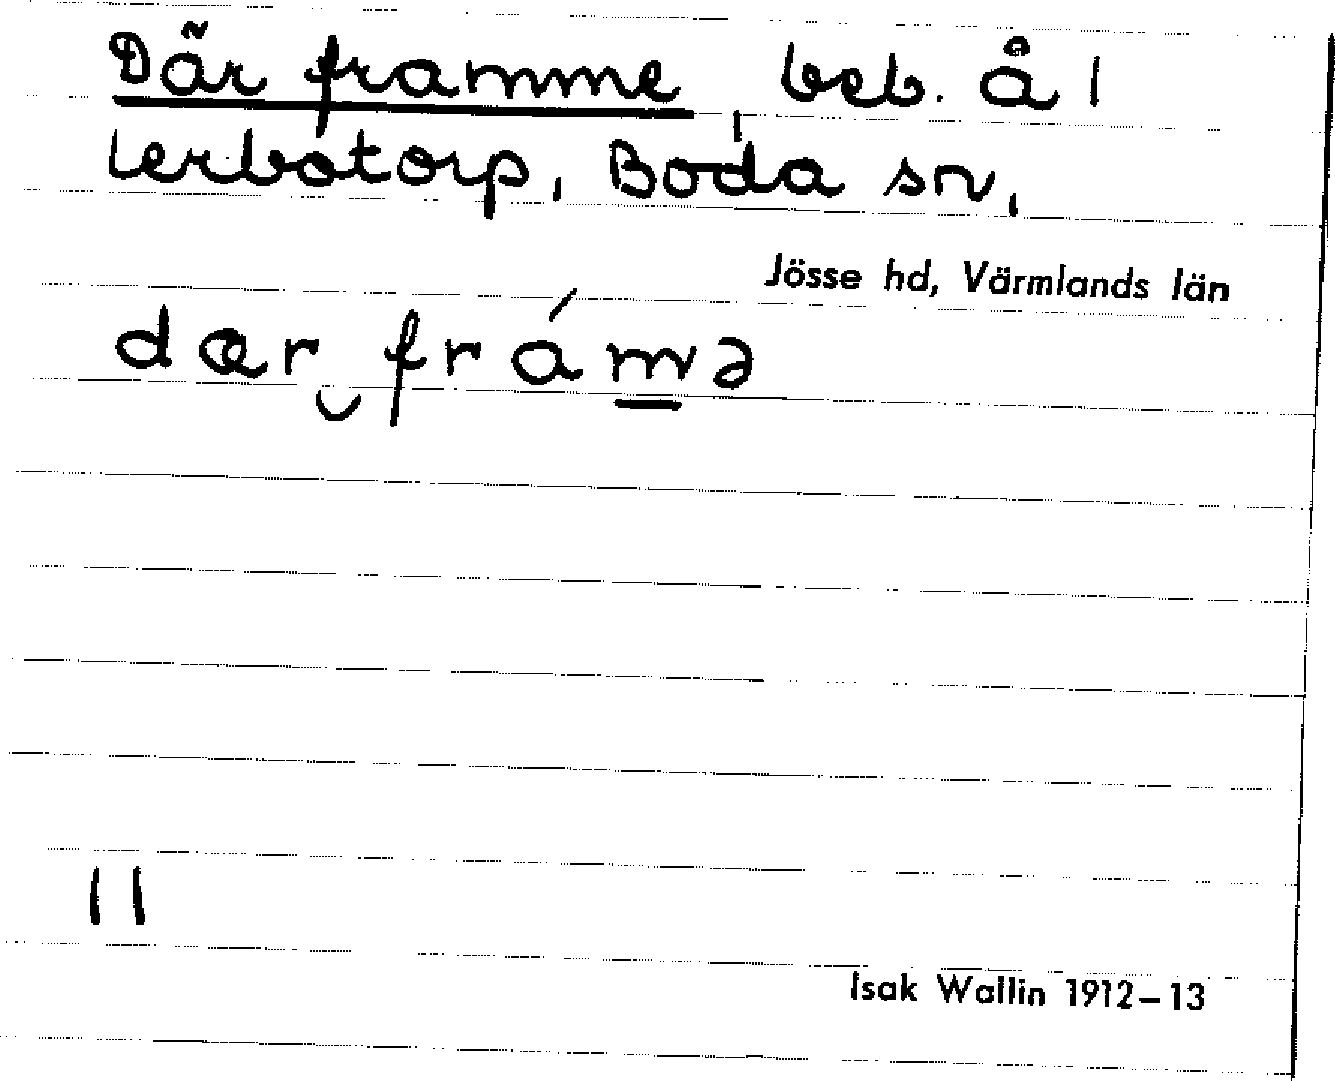 Där framme, beb. å 1
lerbotorp, Boda sn,
Jösse hd, Värmlands län
dær‿frámə
11
Isak Wallin 1912–13